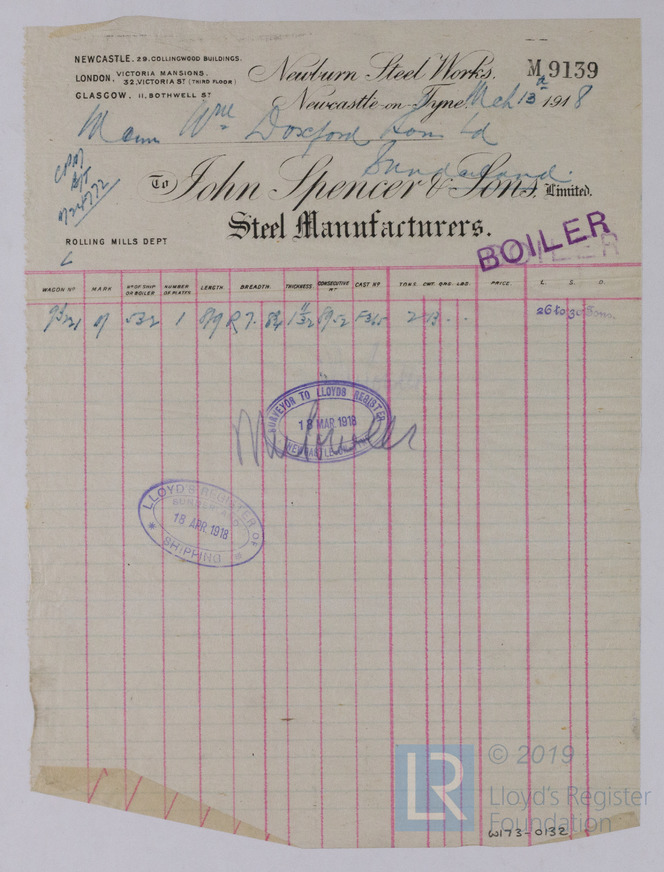 NEWCASTLE. 29. COLLINGWOOD BUILDINGS.
LONDON. VICTORIA MANSIONS. 32, VICTORIA ST (THIRD FLOOR)
GLASGOW. 11, BOTHWELL ST
Newburn Steel Works.
M 9139
Newcastle-on-Tyne Mch 13 1918
Wm Doxford Sons Ld
Sunderland.
To John Spencer & Sons, Limited.
Steel Manufacturers.
ROLLING MILLS DEPT
BOILER
WAGON No MARK No OF SHIP OR BOILER NUMBER OF PLATES LENGTH BREADTH. THICKNESS CONSECUTIVE No CAST No TONS. CWT. QRS. LBS. PRICE. L. S. D.
532 1 8/9 R 7. 1 11/32 26 to 30 Tons.
SURVEYOR TO LLOYDS REGISTER
18 MAR 1918
LLOYD'S REGISTER OF
SUNDERLAND
18 APR. 1918
SHIPPING
LR
© 2019
Lloyd's Register
Foundation
W173-0132